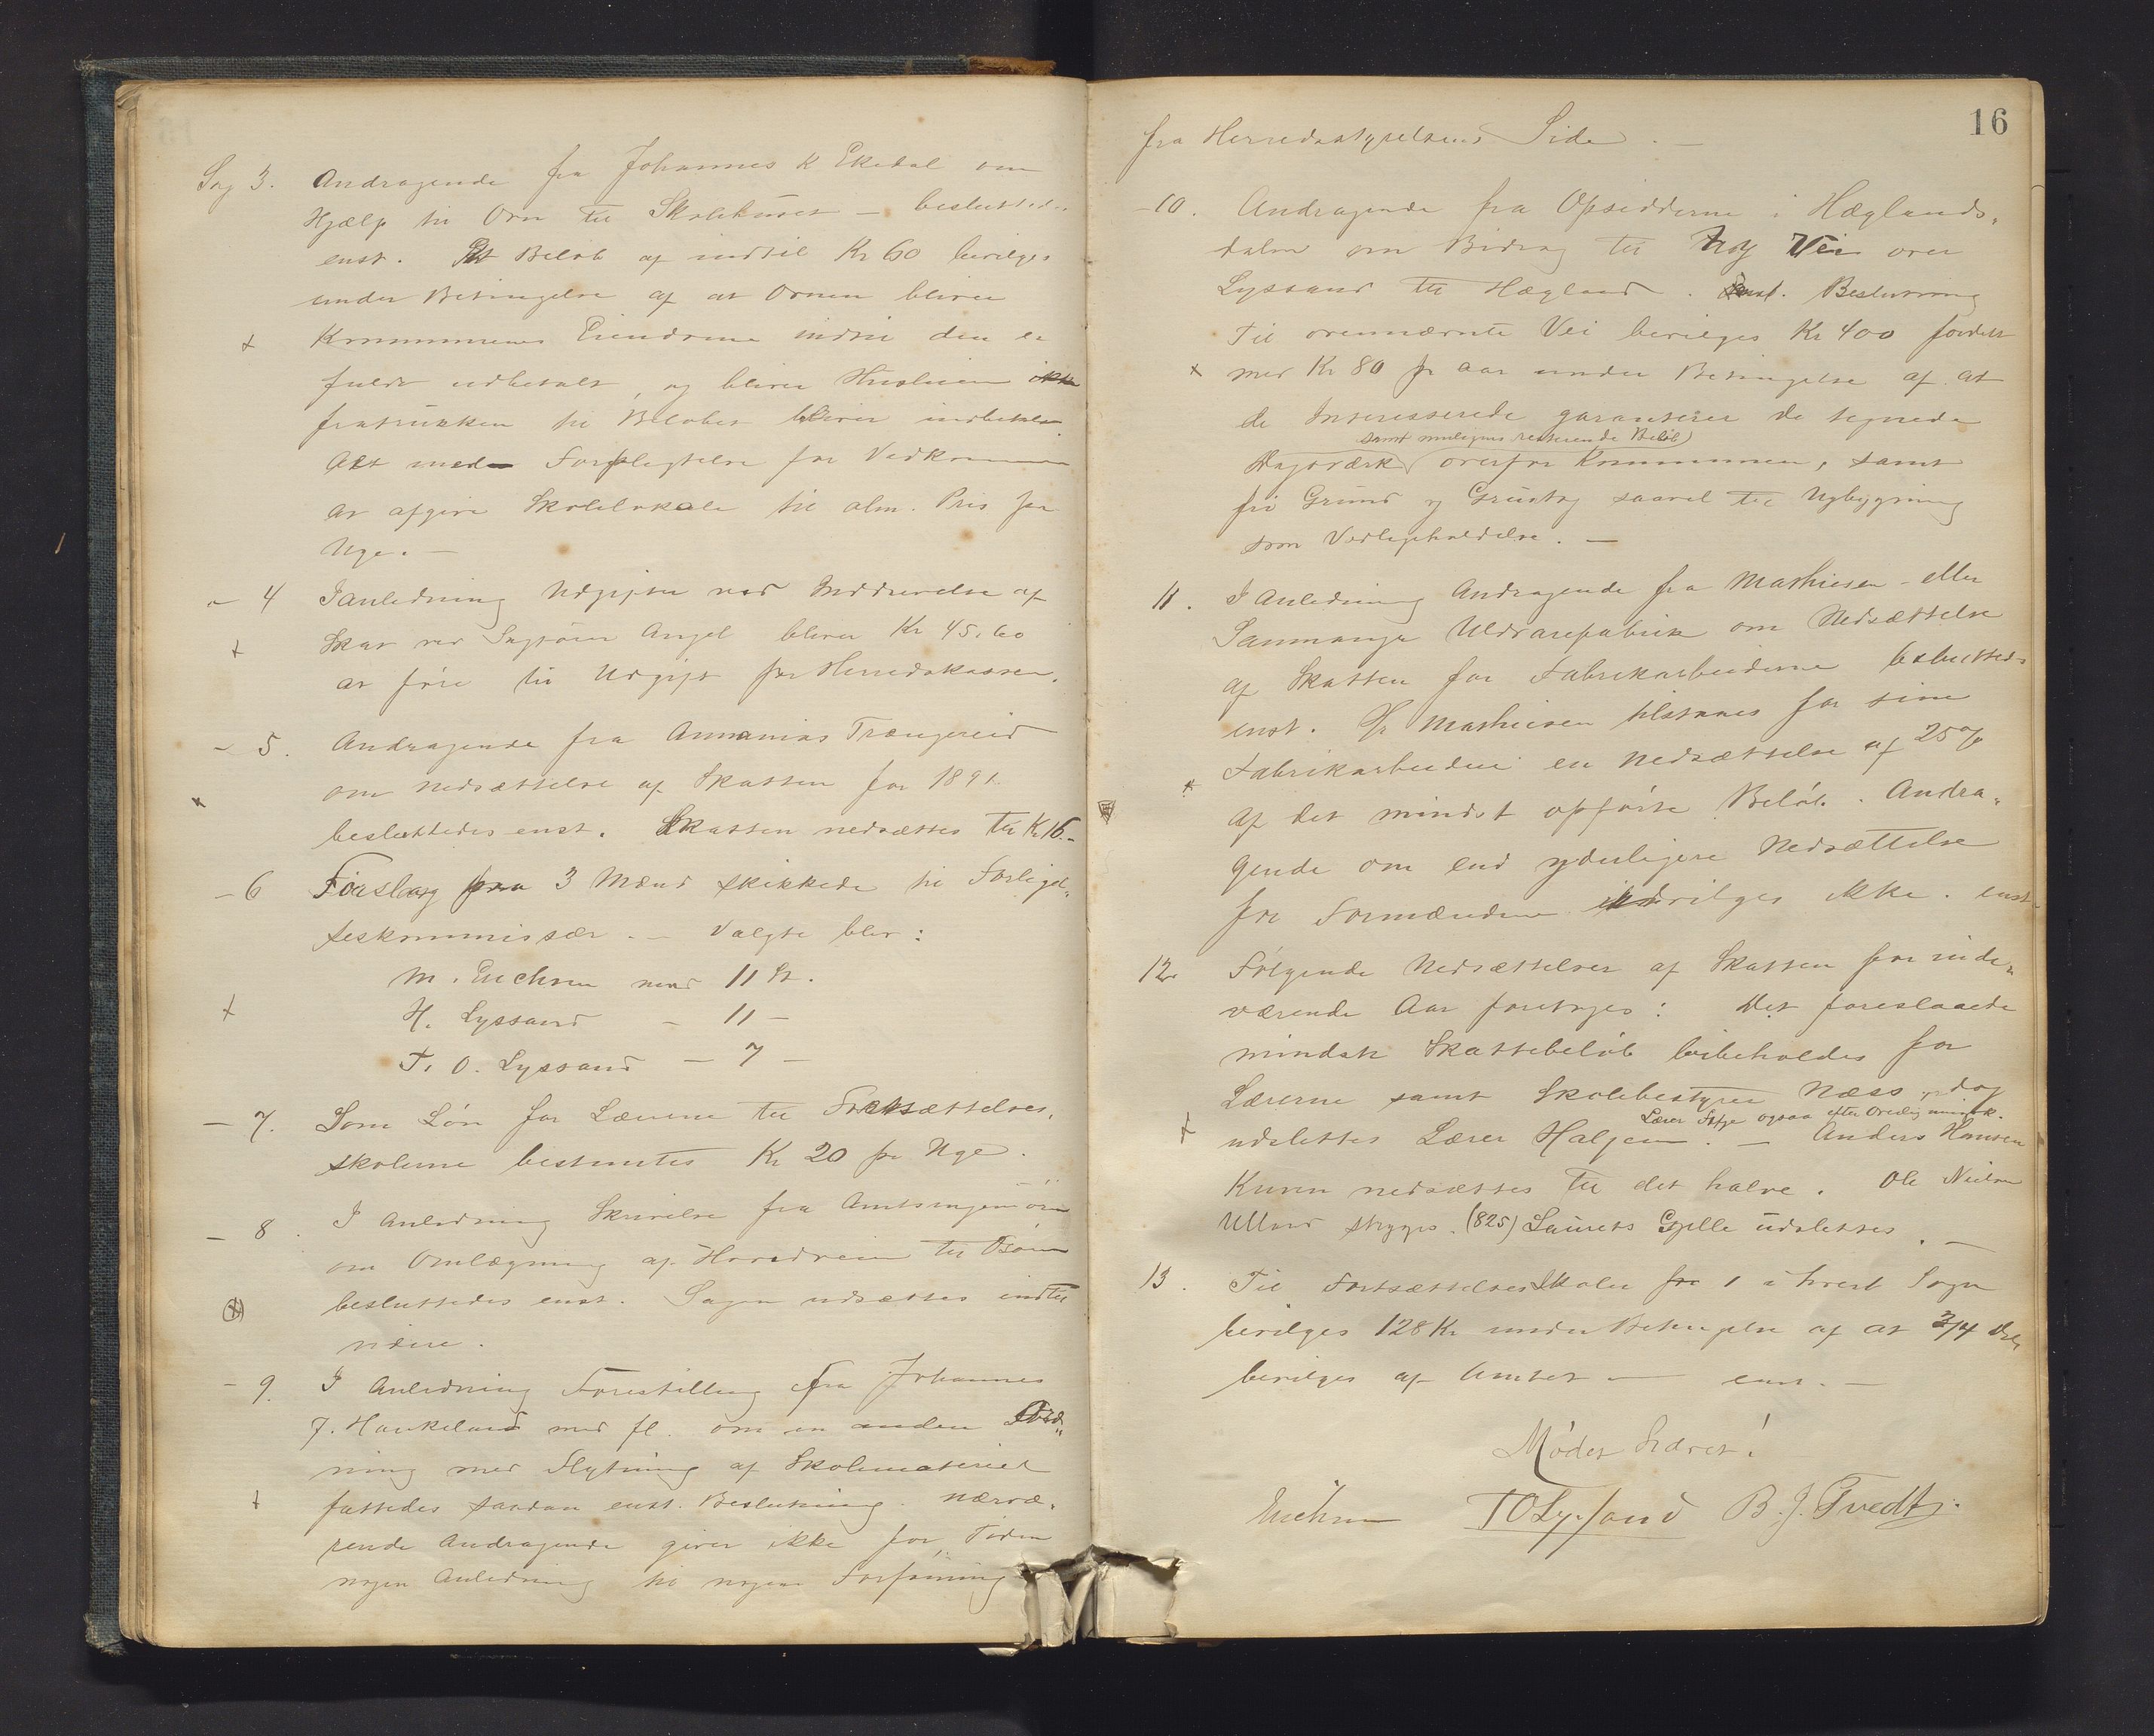 Sag 3. Andragende fra Johannes K Ekedal om
Hjælp til Ovn til Skolehuset - besluttedes
enst. Et Beløb af indtil Kr 60 bevilges
under Betingelse af at Ovnen bliver
x Kommunens Eiendom indtil den er
fuldt udbetalt, og bliver Husleien
fratrukken til Beløbet bliver indbetalt.
Alt med Forpligtelse for Vedkommende
at afgive Skolelokale til alm. Pris pr
Uge. -
- 4 I anledning Udgifter ved Inddrivelse af
x Skat ved Sagfører Angel bliver Kr 45,60
at føre til Udgift for Herredskassen.
- 5. Andragende fra Annanias Trængereid
om Nedsættelse af Skatten for 1891
x besluttedes enst. Skatten nedsættes til Kr 16.-
- 6 Forslag paa 3 Mænd skikkede til Forligel„
seskommissær. - Valgte blev:
M. Erichsen med 11 St.
x H. Lyssand - 11 -
T. O. Lyssand - 7 -
- 7. Som Løn for Lærerne til Fortsættelses„
skolerne bestemtes Kr 20 pr Uge.
- 8. I Anledning Skrivelse fra Amtsingeniøren
om Omlægning af Hovedveien til Osøren
x besluttedes enst. Sagen udsættes indtil
videre.
- 9. I Anledning Forestilling fra Johannes
J. Haukeland med fl. om en anden Ord„
ning med Flytning af Skolemateriel
x fattedes saadan enst. Beslutning. Nærvæ„
rende Andragende giver ikke for Tiden
nogen Anledning til nogen Forføining
16
fra Herredsstyrelsens Side. -
- 10. Andragende fra Opsidderne i Hæglands„
dalen om Bidrag til ny Vei over
Lyssand til Hægland. Enst. Beslutning
Til ovennævnte Vei bevilges Kr 400 fordelt
x med Kr 80 pr Aar under Betingelse af at
de Interesserede garanterer de tegnede
samt muligens resterende Beløb
Dagsværk overfor Kommunen, samt
fri Grund og Grustag saavel til Nybygning
som Vedligeholdelse. -
11. I Anledning Andragende fra Mathiesen - eller
Sammanger Uldvarefabrik om Nedsættelse
af Skatten for Fabrikarbeiderne besluttedes
enst. Hr Mathiesen tilstaaes for sine
x Fabrikarbeidere en Nedsættelse af 25 %
af det mindst opførte Beløb. Andra„
gende om end yderligere Nedsættelse
for Formændene indvilges ikke. enst.
12. Følgende Nedsættelser af Skatten for inde„
værende Aar foretages: Det foreslaaede
mindste Skattebeløb bibeholdes for
Lærerne samt Skolebestyrer Næss, dog
Lærer også efter
x udslettes Lærer Haljem. - Anders Hansen
Kuven nedsættes til det halve. Ole Nielsen
Ullend stryges. (825) Laurets Gjelle udslettes. -
13. Til Fortsættelsesskoler for 1 i hvert Sogn
bevilges 128 Kr under Betingelse af at 3/4 Del
bevilges af Amtet - enst. -
Mødet hævet!
Erichsen TOLyssand B. J. Tvedt